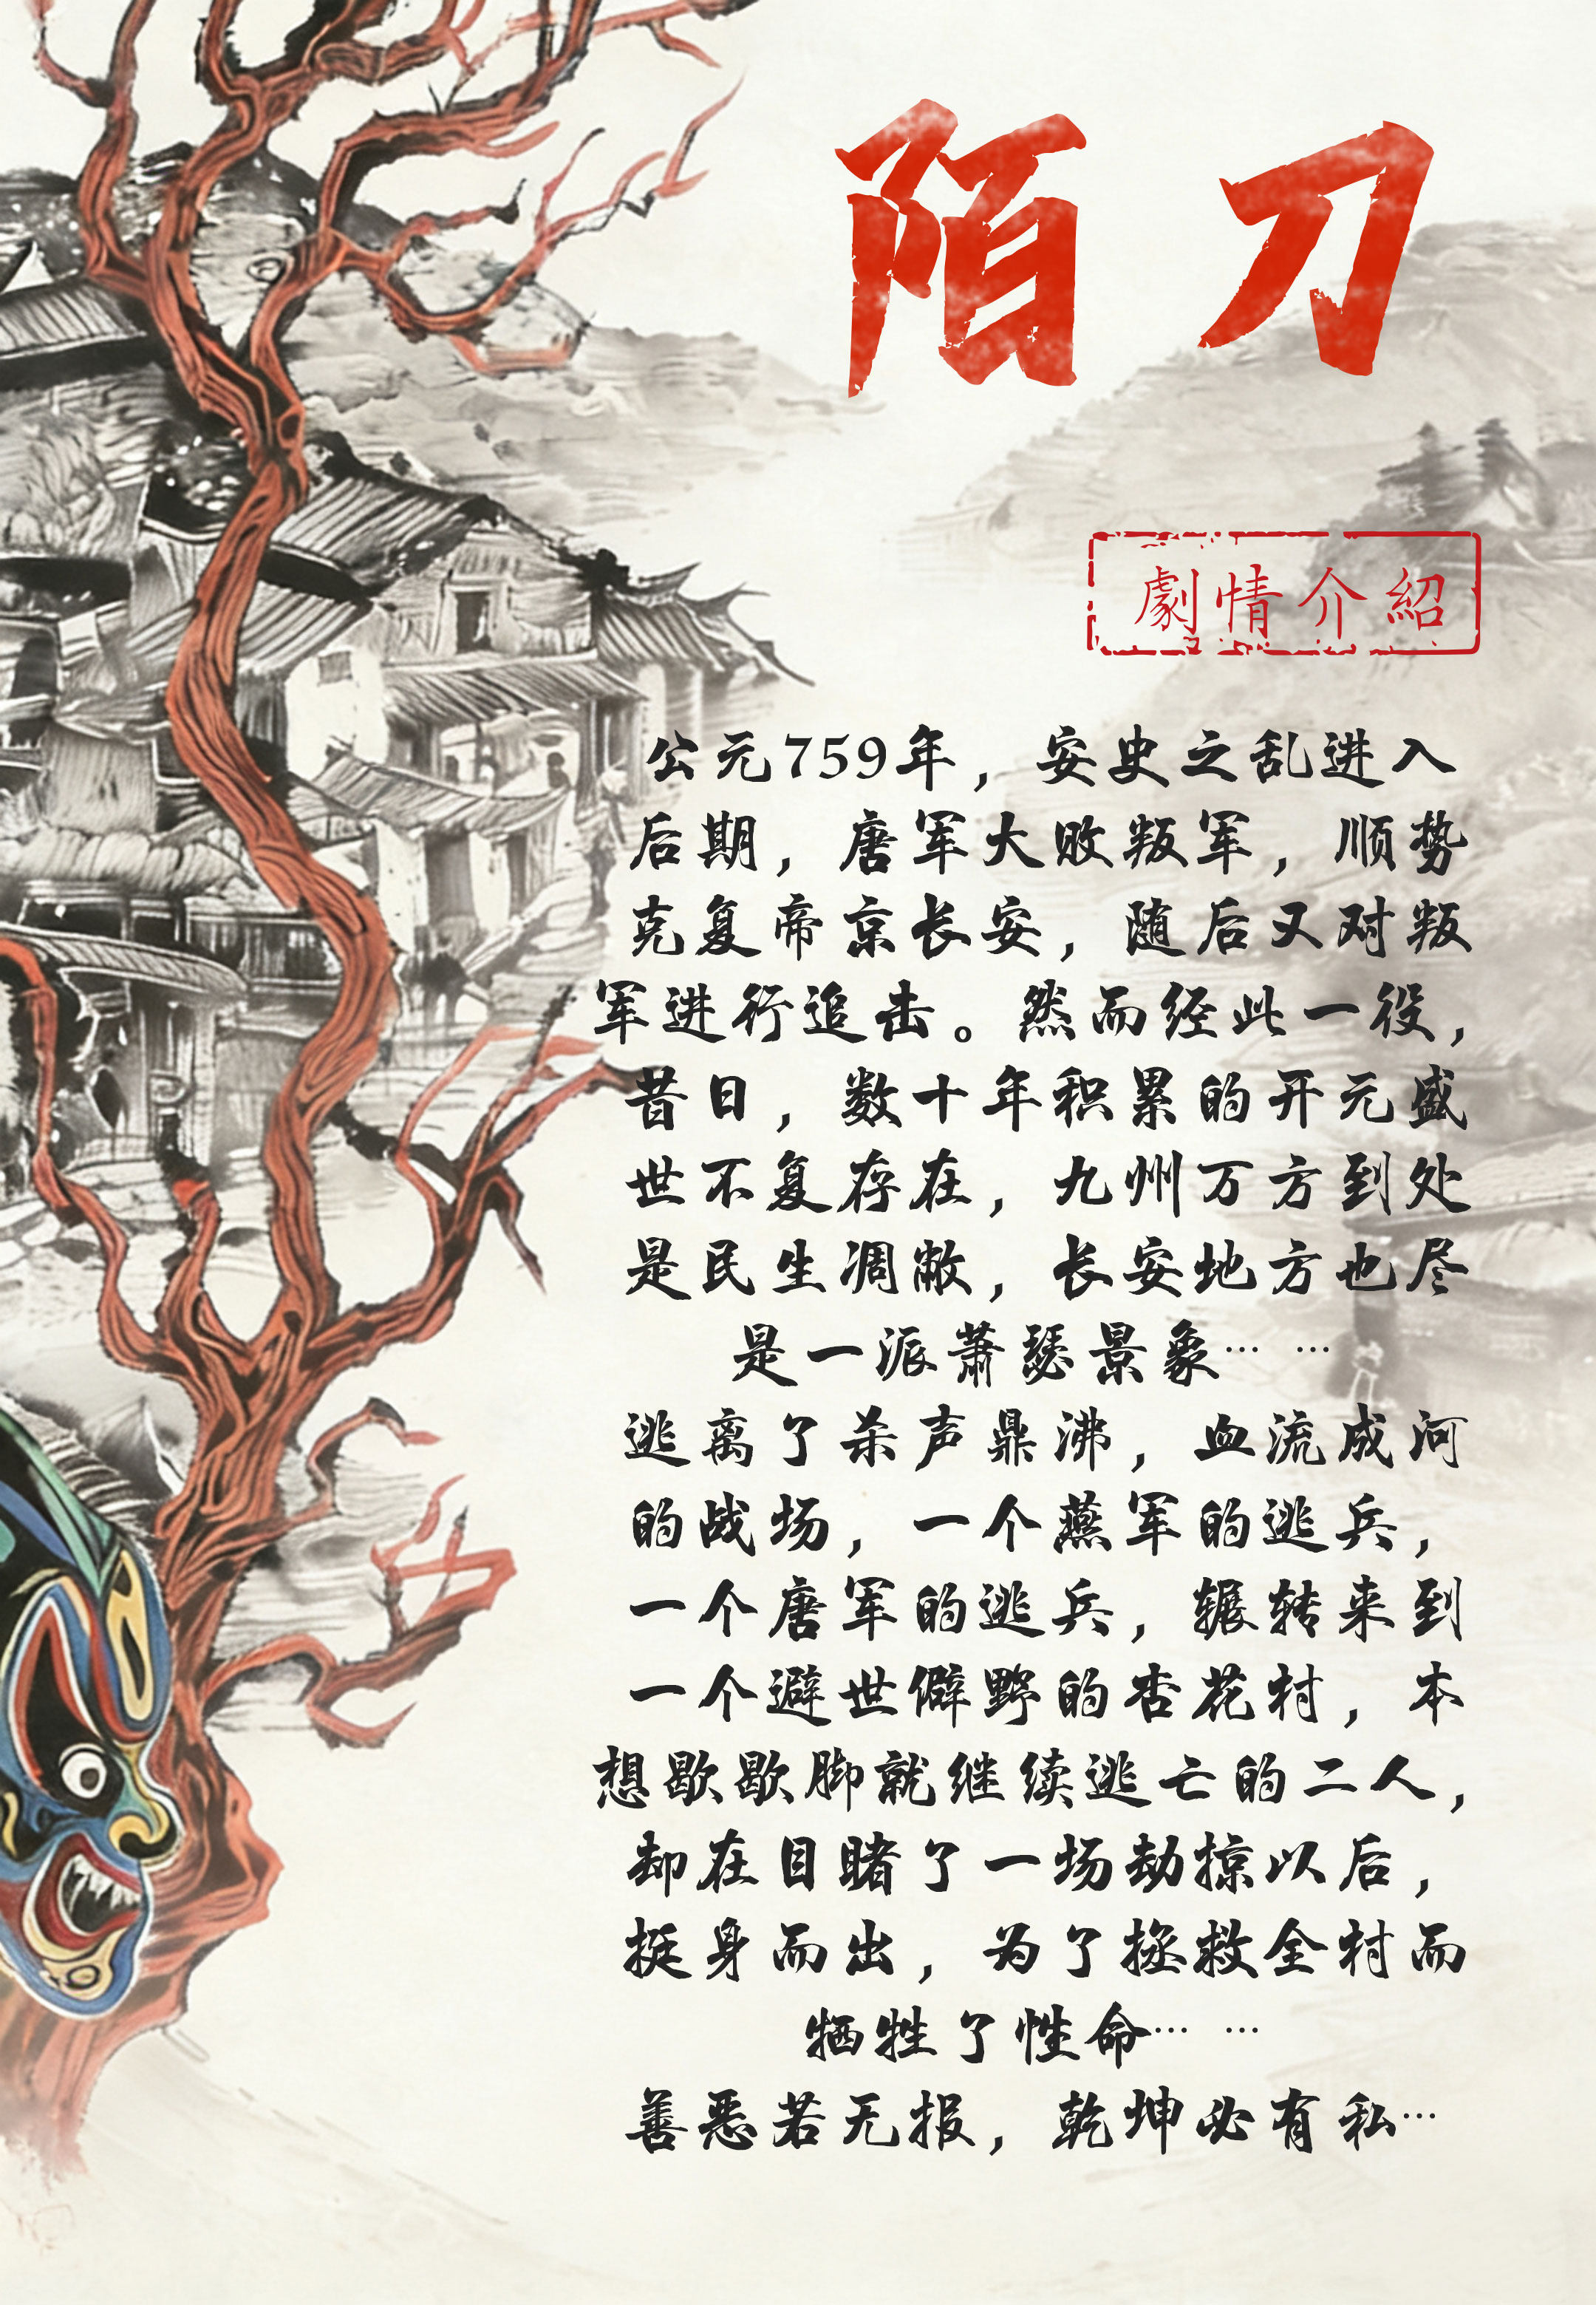 陌刀
劇情介紹
公元759年，安史之乱进入
后期，唐军大败叛军，顺势
克复帝京长安，随后又对叛
军进行追击。然而经此一役，
昔日，数十年积累的开元盛
世不复存在，九州万方到处
是民生凋敝，长安地方也尽
是一派萧瑟景象… …
逃离了杀声鼎沸，血流成河
的战场，一个燕军的逃兵，
一个唐军的逃兵，辗转来到
一个避世僻野的杏花村，本
想歇歇脚就继续逃亡的二人，
却在目睹了一场劫掠以后，
挺身而出，为了拯救全村而
牺牲了性命… …
善恶若无报，乾坤必有私…